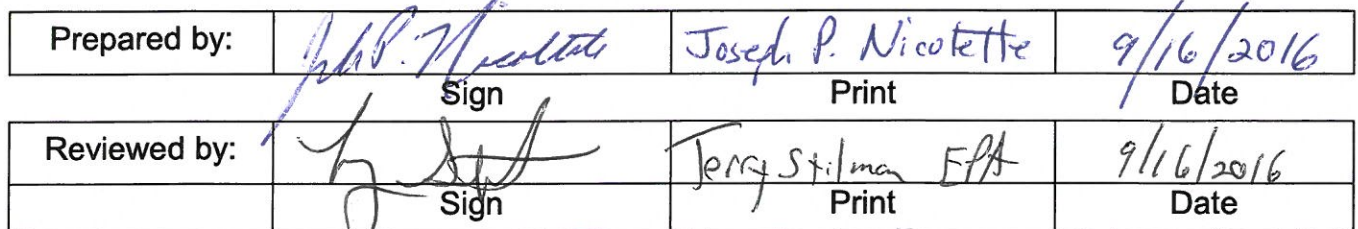 Prepared by: Joseph P. Nicolette 9/16/2016
Sign Print Date
Reviewed by: Jerry Stilman EPA 9/16/2016
Sign Print Date